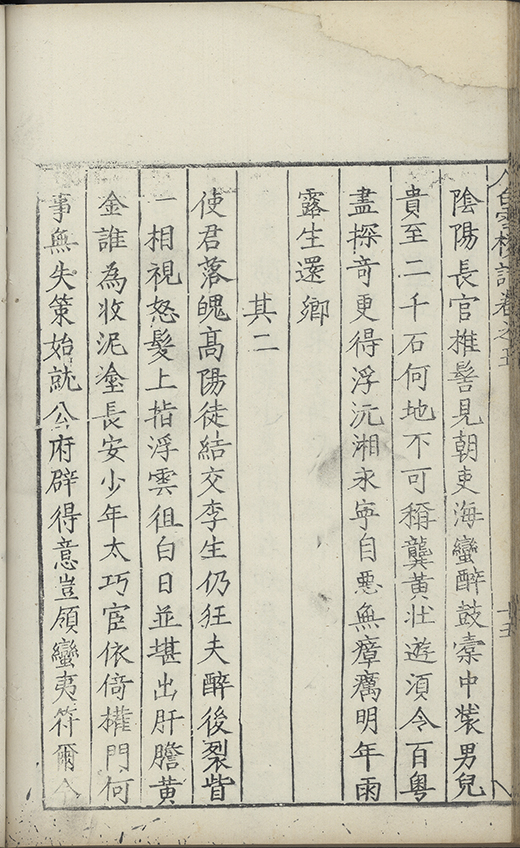 白雲樓詩卷之五
十五
陰陽長官椎髻見朝吏海蠻醉鼓橐中裝男兒
貴至二千石何地不可稱龔黃壯遊須令百粤
盡探竒更得浮沅湘永寕自惡無瘴癘明年雨
露生還鄉
其二
使君落魄高陽徒結交李生仍狂夫醉後裂眥
一相視怒髮上指浮雲徂白日並堪出肝膽黄
金誰為收泥塗長安少年太巧宦依倚權門何
事無失策始就公府辟得意豈領蠻夷符爾今